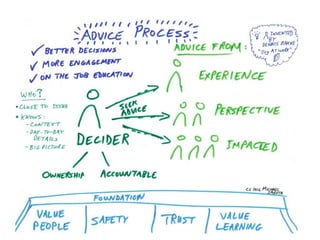 ADVICE PROCESS
✓ BETTER DECISIONS
✓ MORE ENGAGEMENT
✓ ON THE JOB EDUCATION
ADVICE FROM:
INVENTED
BY
DENNIS BAKKE
EXPERIENCE
PERSPECTIVE
IMPACTED
SEEK
ADVICE
WHO?
• CLOSE TO ISSUE
• KNOWS:
- CONTEXT
- DAY-TO-DAY
DETAILS
- BIG PICTURE
DECIDER
OWNERSHIP
ACCOUNTABLE
FOUNDATION
VALUE
PEOPLE
SAFETY
TRUST
VALUE
LEARNING